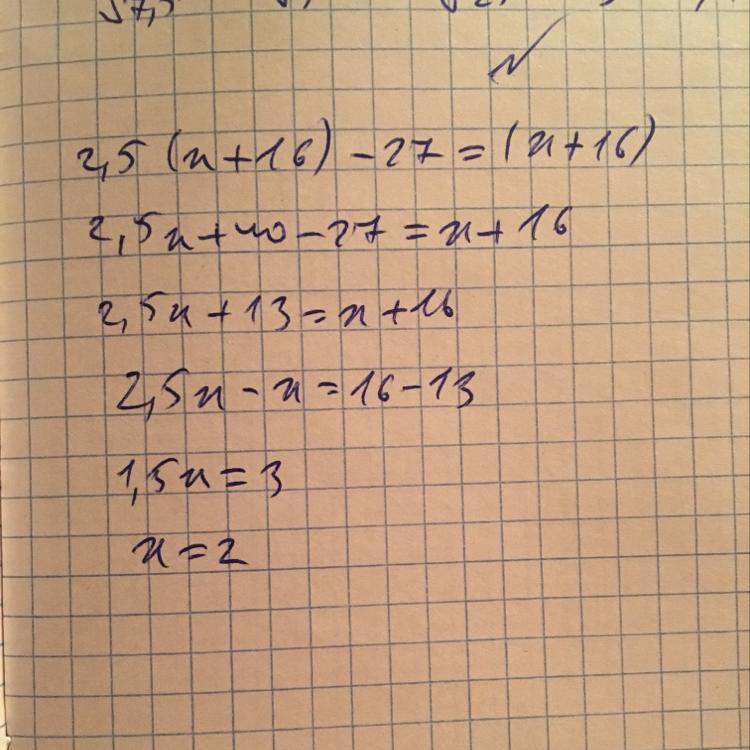 2,5 (x+16) - 27 = (x+16)
2,5x + 40 - 27 = x + 16
2,5x + 13 = x + 16
2,5x - x = 16 - 13
1,5x = 3
x = 2